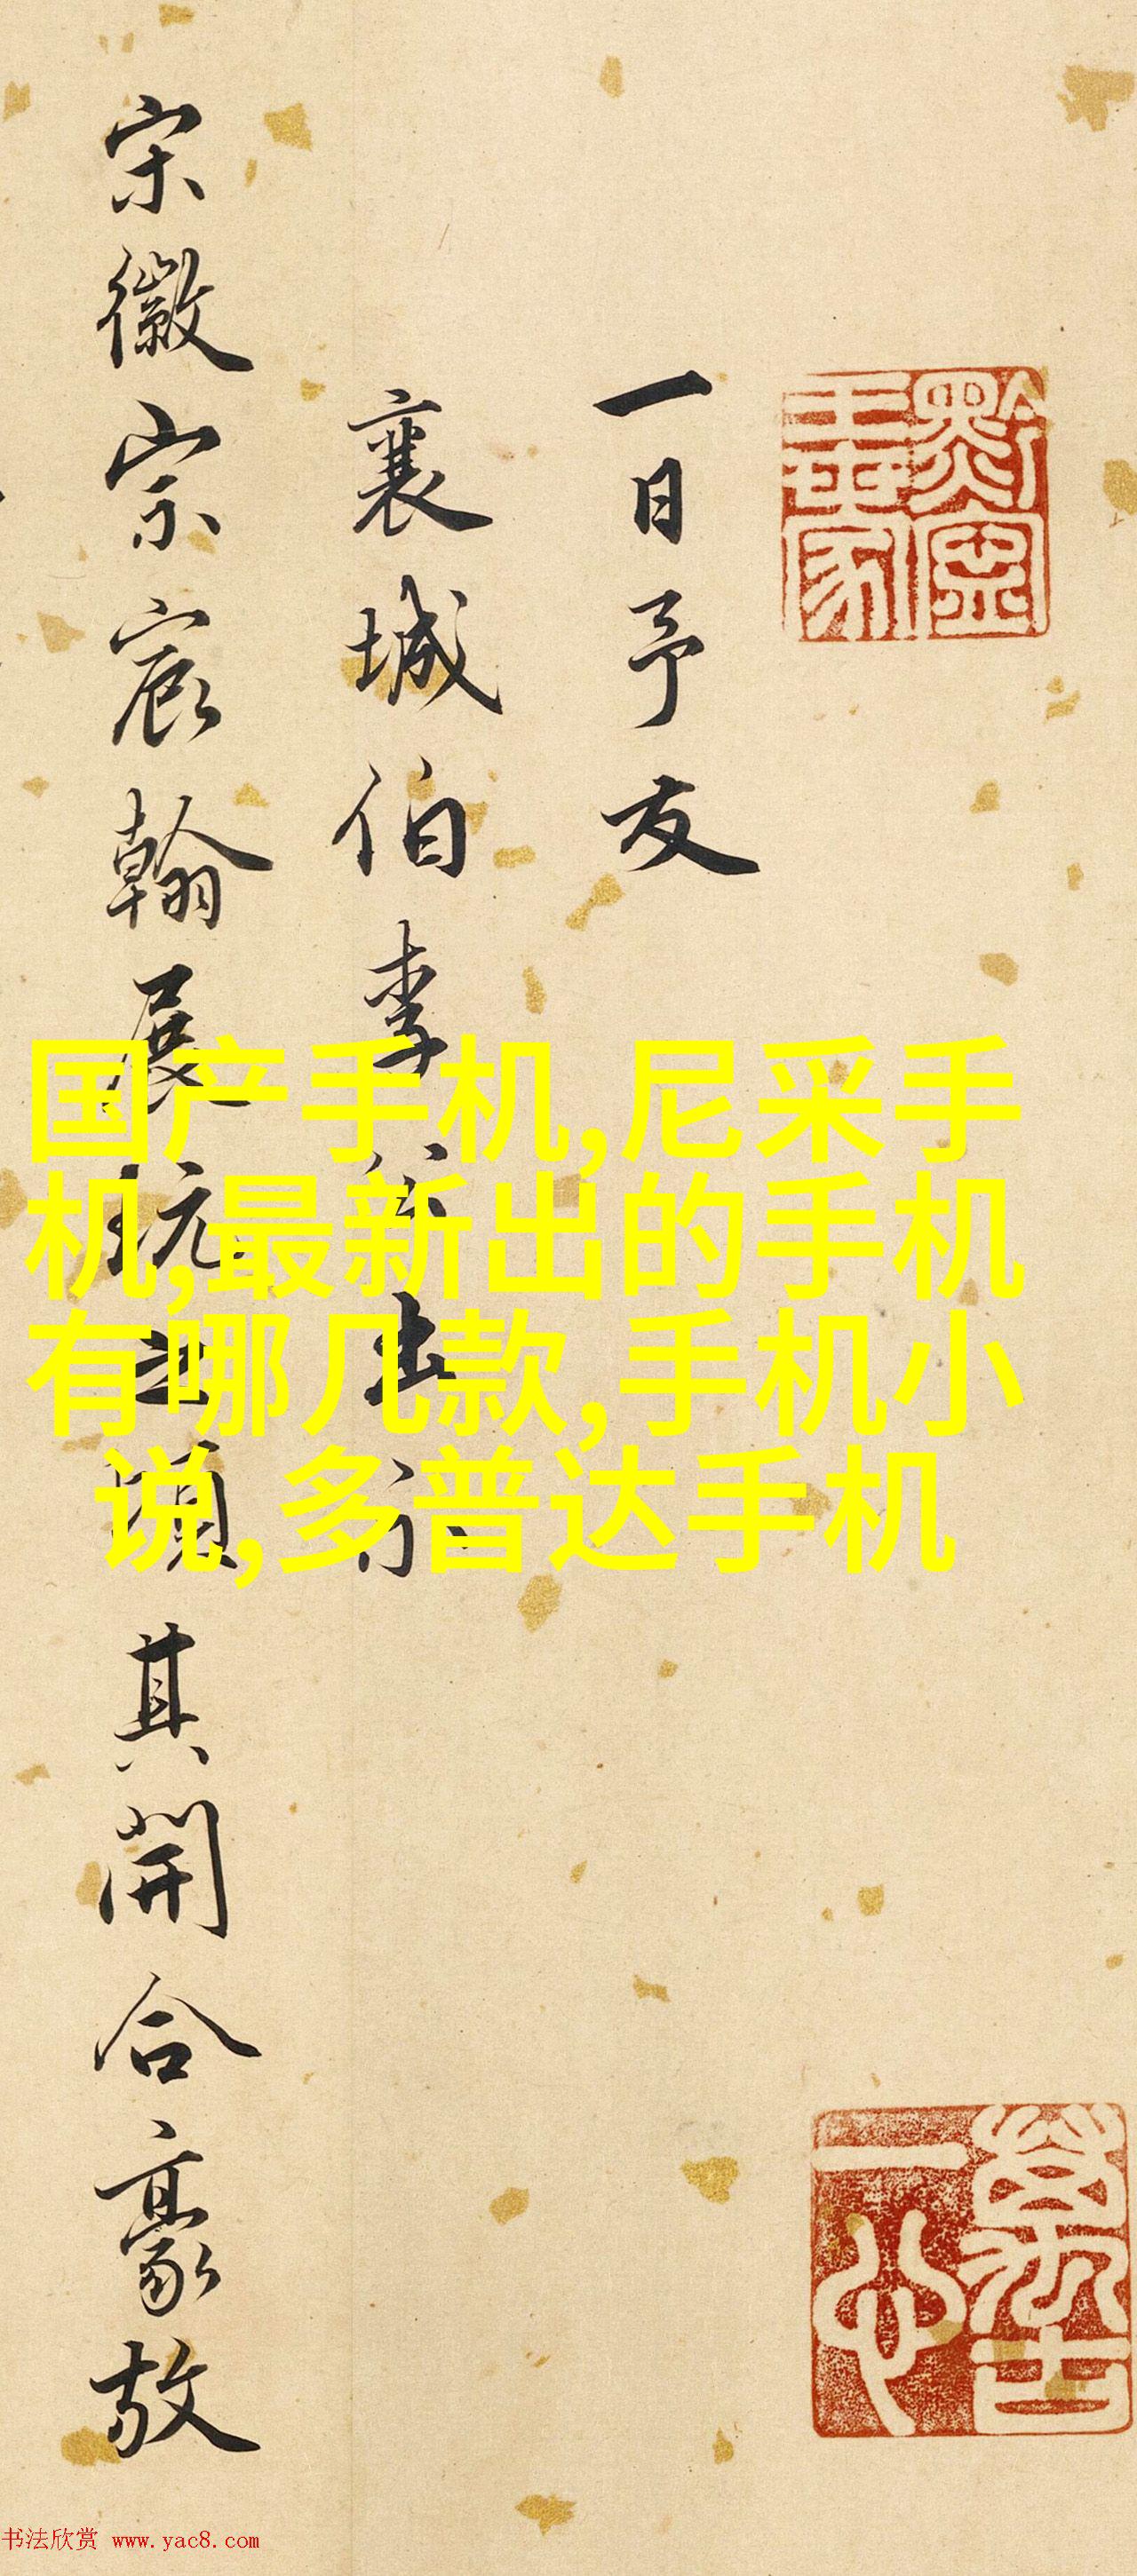 一日予友
襄城伯李公出
宋徽宗宸翰展玩之頃其開合豪放
国产手机,尼采手
机,最新出的手机
有哪几款,手机小
说,多普达手机
书法欣赏 www.yac8.com